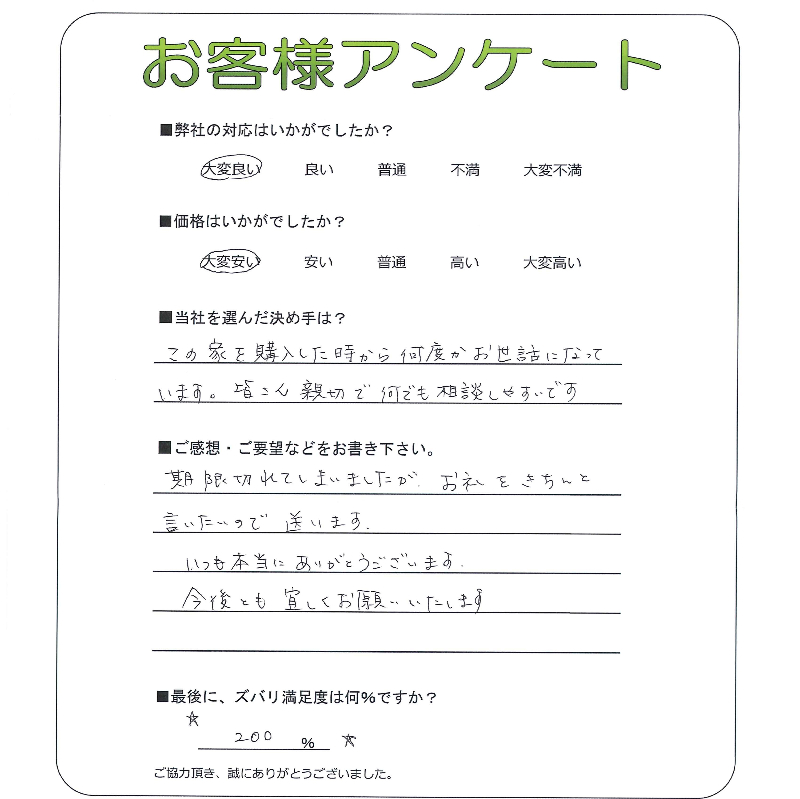 お客様アンケート
■弊社の対応はいかがでしたか？
大変良い 良い 普通 不満 大変不満
■価格はいかがでしたか？
大変安い 安い 普通 高い 大変高い
■当社を選んだ決め手は？
この家を購入した時から何度かお世話になって
います。皆さん親切で何でも相談しやすいです
■ご感想・ご要望などをお書き下さい。
期限切れてしまいましたが、お礼をきちんと
言いたいので送います.
いつも本当にありがとうございます.
今後とも宜しくお願いいたします
■最後に、ズバリ満足度は何%ですか？
☆ 200 % ☆
ご協力頂き、誠にありがとうございました。